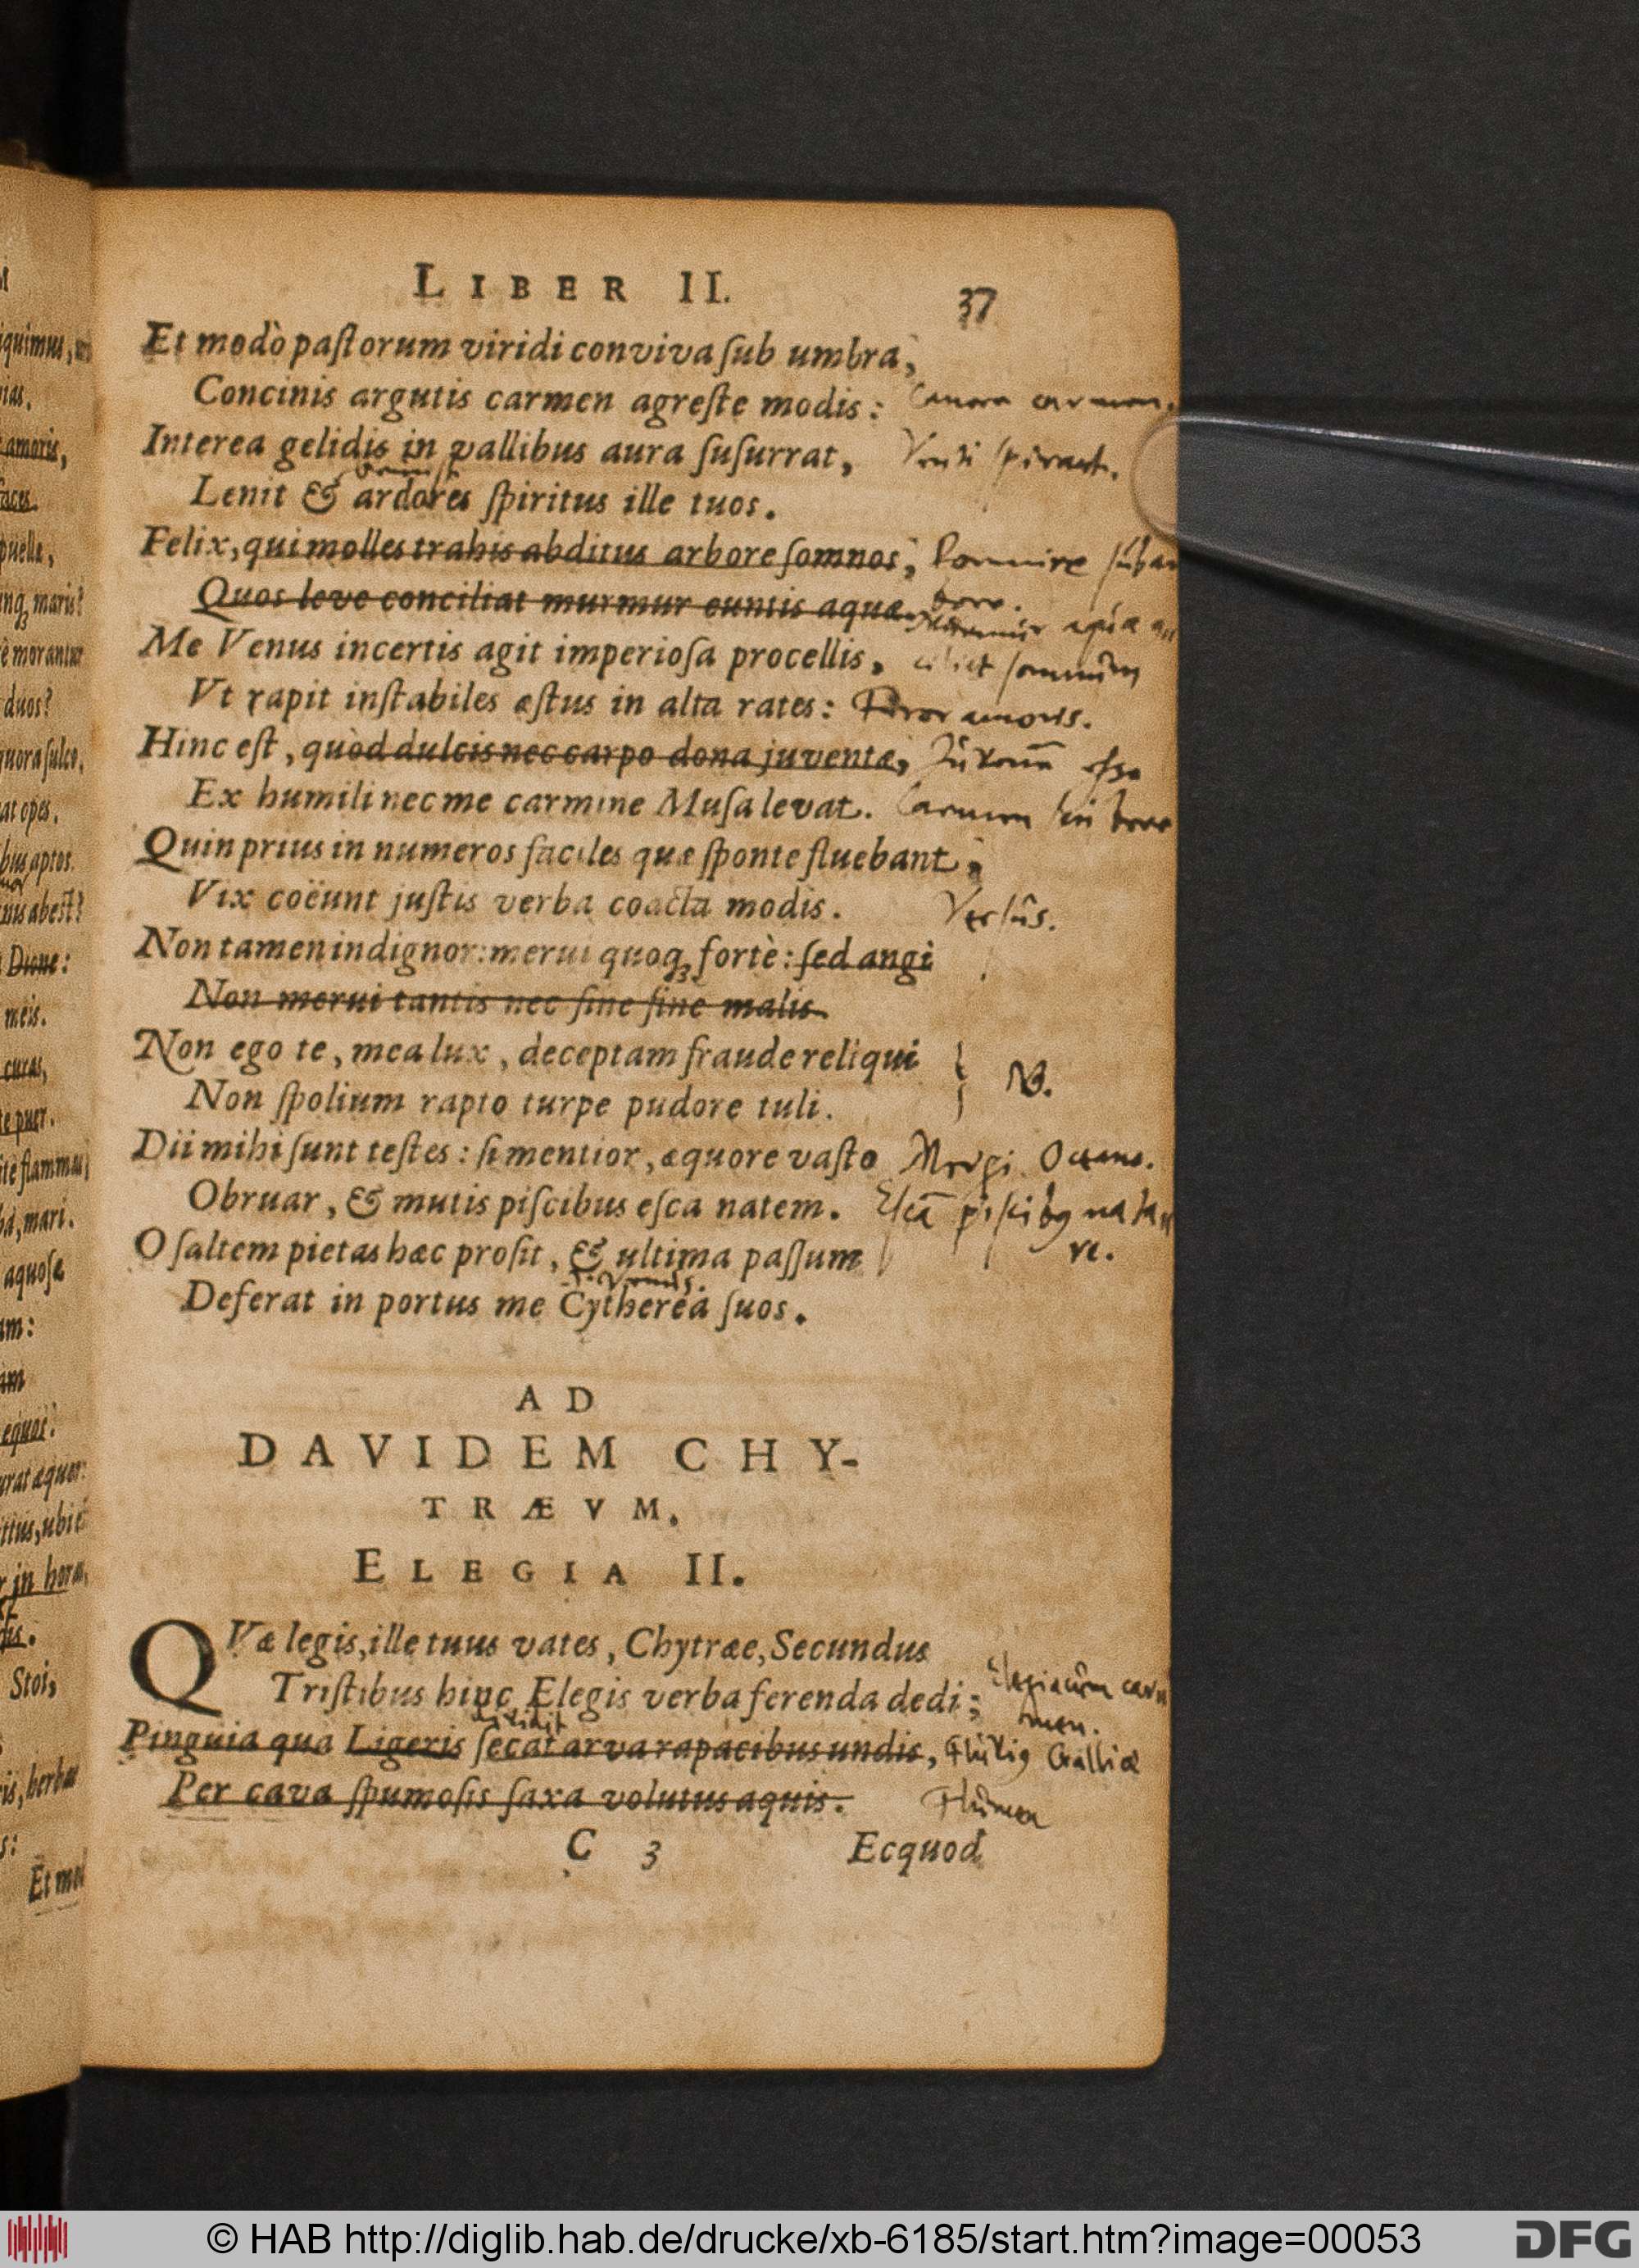 LIBER II. 37
Et modò paſtorum viridi conviva ſub umbra,
Concinis argutis carmen agreſte modis: Canora carmen.
Interea gelidis in vallibus aura ſuſurrat, Venti ſpirant.
Lenit & ardores ſpiritus ille tuos.
Felix, qui molles trahis abditus arbore ſomnos, Dormire ſub ar
Quos leve conciliat murmur euntis aquæ. bore.
Me Venus incertis agit imperioſa procellis, ſomnum
Vt rapit inſtabiles æſtus in alta rates: amoris.
Hinc eſt, quòd dulcis nec carpo dona juventæ, eſſe
Ex humili nec me carmine Muſa levat. Carmen
Quin prius in numeros faciles quæ ſponte fluebant,
Vix coëunt juſtis verba coacta modis. Verſus.
Non tamen indignor: merui quoq; fortè: ſed angi
Non merui tantis nec ſine fine malis.
Non ego te, mea lux, deceptam fraude reliqui
Non ſpolium rapto turpe pudore tuli. NB.
Dii mihi ſunt teſtes: ſi mentior, æquore vaſto Mergi Oceano.
Obruar, & mutis piſcibus eſca natem. Eſcā piſcibꝯ nata
re.
O ſaltem pietas hæc proſit, & ultima paſſum
i. Venus.
Deferat in portus me Cytherea ſuos.
AD
DAVIDEM CHY-
TRÆVM.
ELEGIA II.
QVæ legis, ille tuus vates, Chytræe, Secundus
Triſtibus hinc Elegis verba ferenda dedi; Elegiacum car
men.
dividit
Pinguia qua Ligeris ſecat arva rapacibus undis, Galliæ
Per cava ſpumoſis ſaxa volutus aquis. Flumen
C 3 Ecquod
© HAB http://diglib.hab.de/drucke/xb-6185/start.htm?image=00053
DFG